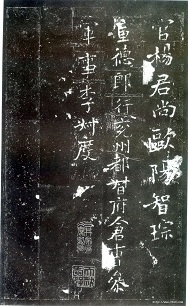 官楊君尚歐陽智琮
宣德郎行兗州都督府倉曹參
軍事李叔度